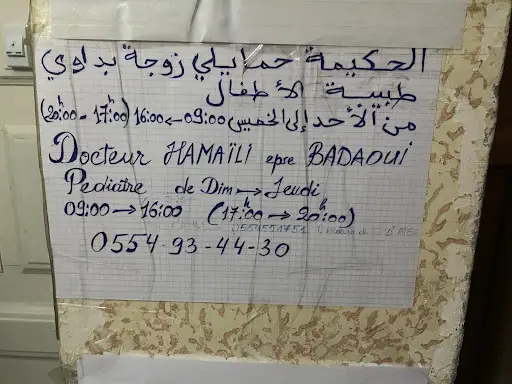 الحكيمة حمايلي زوجة بداوي
طبيبة الأطفال
من الأحد إلى الخميس 09:00 -> 16:00 (17h:00 - 20h:00)
Docteur HAMAÏLI epse BADAOUI
Pediatre de Dim -> Jeudi
09:00 -> 16:00 (17h:00 -> 20h:00)
0554-93-44-30